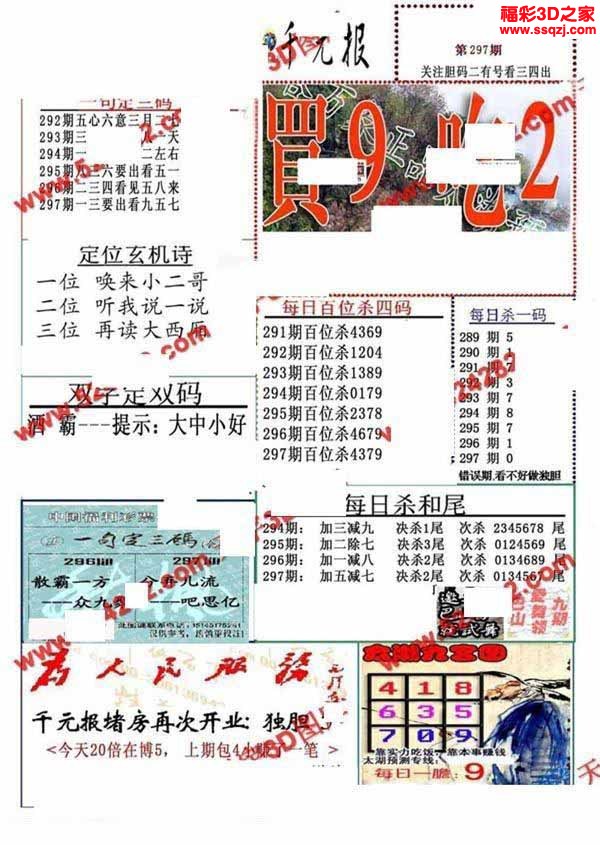 福彩3D之家
www.ssqzj.com
千元报
第297期
关注胆码二有号看三四出
買9吃2
一句定三码
292期五心六意三月二七
293期三 八天
294期一 二左右
295期八三六要出看五一
296期二三四看见五八来
297期一三要出看九五七
定位玄机诗
一位 唤来小二哥
二位 听我说一说
三位 再读大西厢
双字定双码
酒 霸---提示:大中小好
每日百位杀四码
291期百位杀4369
292期百位杀1204
293期百位杀1389
294期百位杀0179
295期百位杀2378
296期百位杀4679
297期百位杀4379
每日杀一码
289 期 5
290 期 1
291 期 7
292 期 3
293 期 7
294 期 8
295 期 7
296 期 1
297 期 0
错误期,看不好做独胆
每日杀和尾
294期: 加三减九 决杀1尾 次杀 2345678 尾
295期: 加二除七 决杀3尾 次杀 0124569 尾
296期: 加一减八 决杀2尾 次杀 0134689 尾
297期: 加五减七 决杀2尾 次杀 0134567 尾
中国福利彩票
一句定三码
296期
297期
散霸一方
今春儿流
——众九
——吧思亿
仅供参考,慎慎重投注!
九期
为人民服务
千元报堵房再次开业:独胆
<今天20倍在博5, 上期包4小赚了一笔 >
太湖九宫图
4 1 8
6 3 5
7 0 9
靠实力吃饭,靠本事赚钱
太湖预测专线:
每日一胆: 9